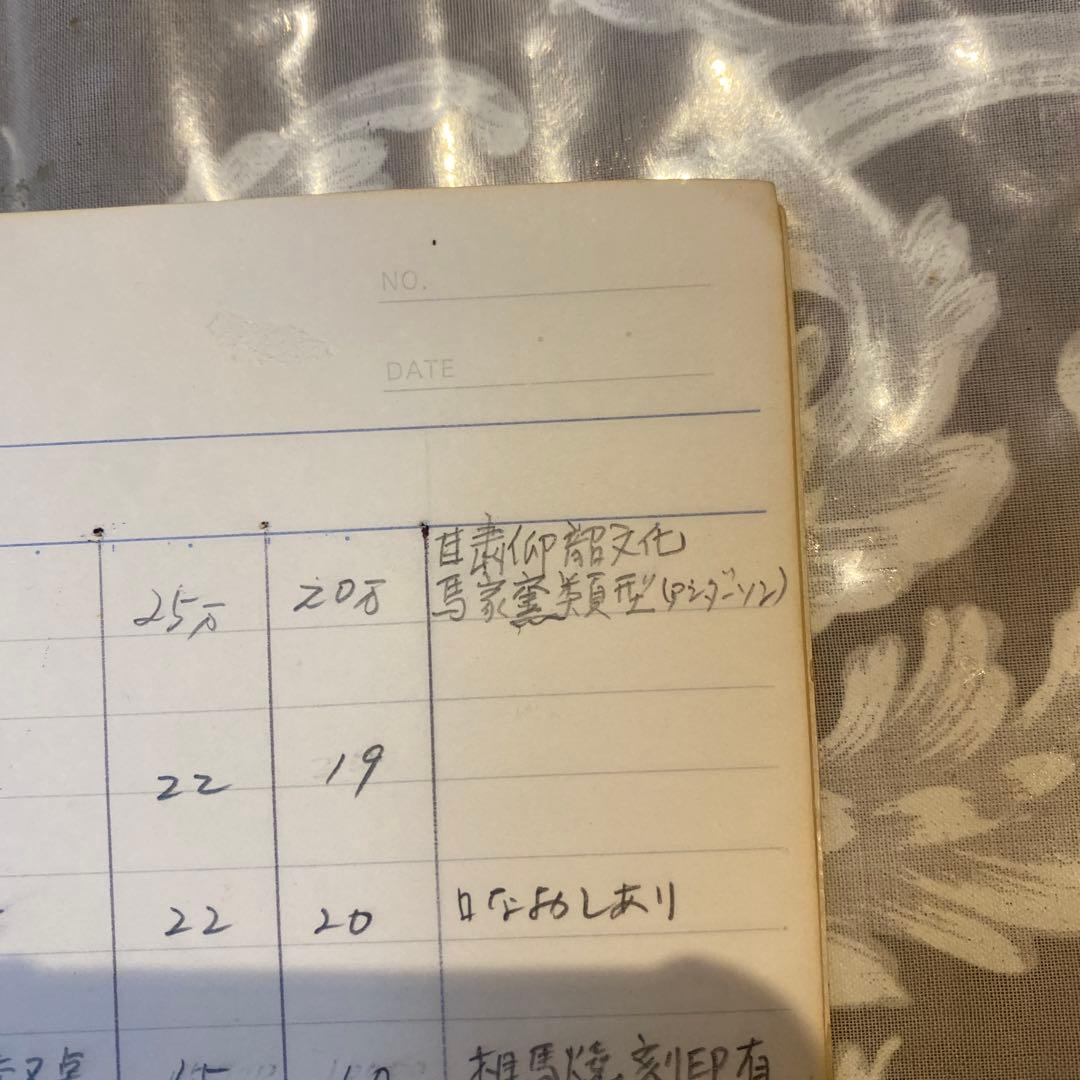 NO.
DATE
25万 20万 甘粛仰韶文化
馬家窯類型(アンダーソン)
22 19
22 20 口なおしあり
15 10 相馬焼 刻印有